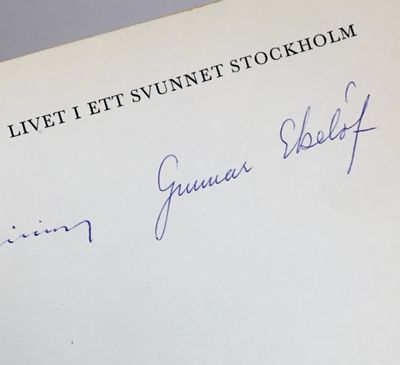 LIVET I ETT SVUNNET STOCKHOLM
Gunnar Ekelöf